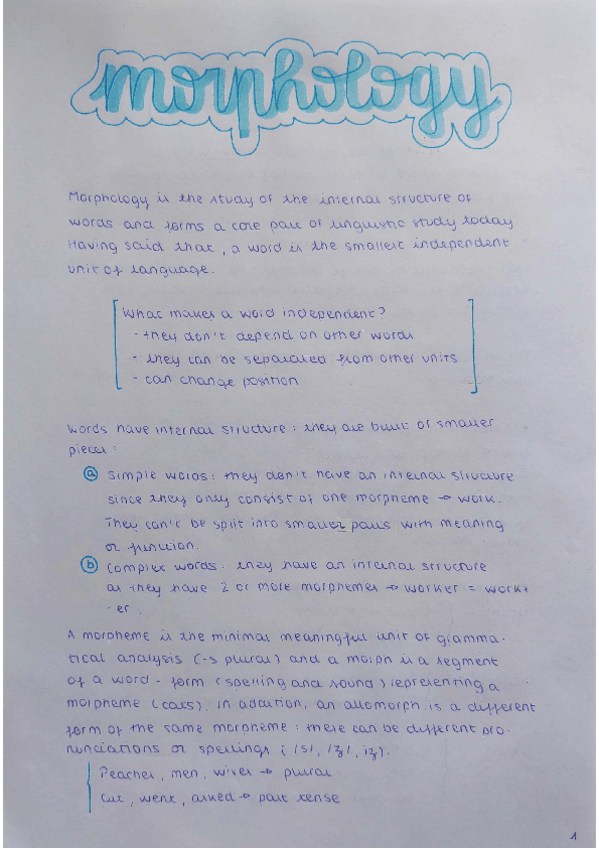 morphology
Morphology is the study of the internal structure of
words and forms a core part of linguistic study today
Having said that, a word is the smallest independent
unit of language.
What makes a word independent?
- they don't depend on other words
- they can be separated from other units
- can change position
Words have internal structure: they are built of smaller
pieces:
a Simple words: they don't have an internal structure
since they only consist of one morpheme → work.
They can't be split into smaller parts with meaning
or function.
b Complex words: they have an internal structure
as they have 2 or more morphemes → worker = work+
-er.
A morpheme is the minimal meaningful unit of gramma-
tical analysis (-s plural) and a morph is a segment
of a word-form (spelling and sound) representing a
morpheme (cats). In addition, an allomorph is a different
form of the same morpheme: there can be different pro-
nunciations or spellings (/s/, /z/, iz).
Peaches, men, wives → plural
Cut, went, asked → past tense
1